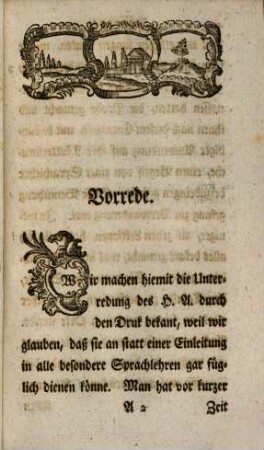 Vorrede.
Wir machen hiemit die Unter-
redung des H. A. durch
den Druk bekant, weil wir
glauben, daß sie an statt einer Einleitung
in alle besondere Sprachlehren gar füg-
lich dienen könne. Man hat vor kurzer
A 2 Zeit